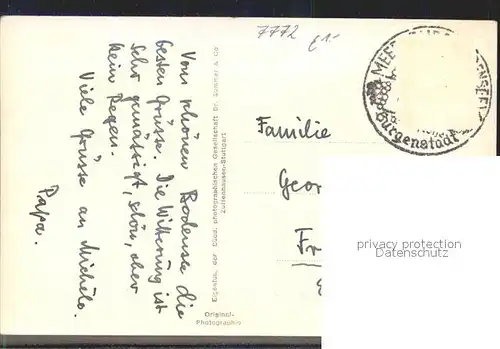 7772 £1.-
Vom schönen Bodensee die
besten Grüsse. Die Witterung ist
sehr gemässigt, schön, aber
kein Regen.
Viele Grüsse an Michele.
Papa.
Eigentum der Südd. photographischen Gesellschaft Dr. &
Zuffenhausen-Stuttgart
Original-
Photographie
MEER
Burgenstadt
Familie
Geor
Fr
privacy protection
Datenschutz